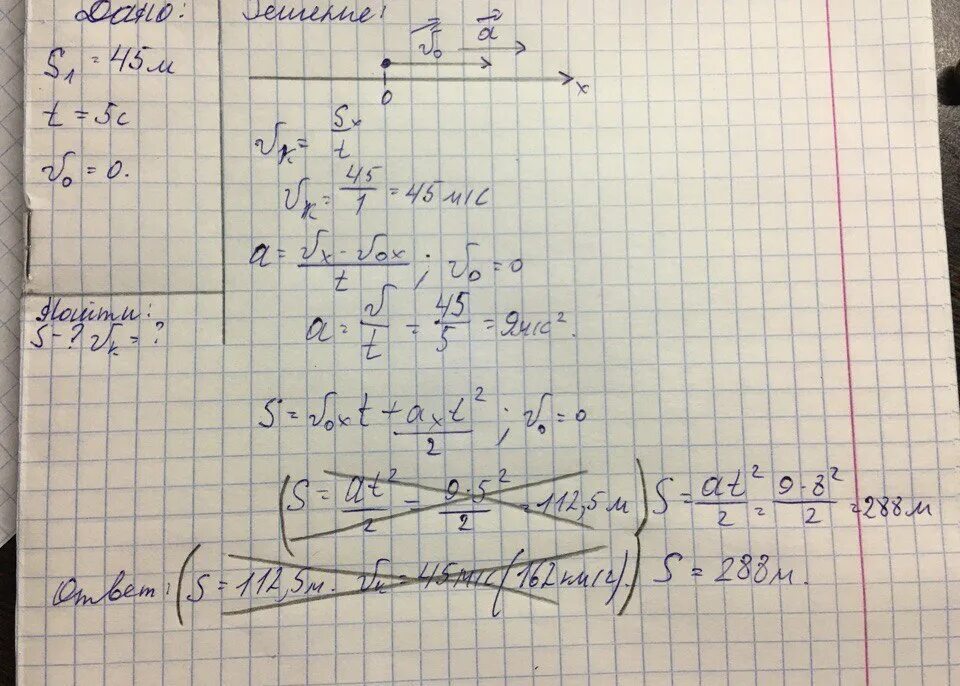 Дано:
S₁ = 45 м
t = 5 с
v₀ = 0.
Найти:
S - ? vₖ = ?
Решение:
v⃗₀ a⃗
0 x
vₖ = Sₓ/t
vₖ = 45/1 = 45 м/с
a = (vₓ - v₀ₓ)/t ; v₀ = 0
a = v/t = 45/5 = 9 м/с².
S = v₀ₓt + aₓt²/2 ; v₀ = 0
(S = at²/2 = 9·5²/2 = 112,5 м) S = at²/2 = 9·8²/2 = 288 м
Ответ: (S = 112,5 м. vₖ = 45 м/с (162 км/ч).) S = 288 м.